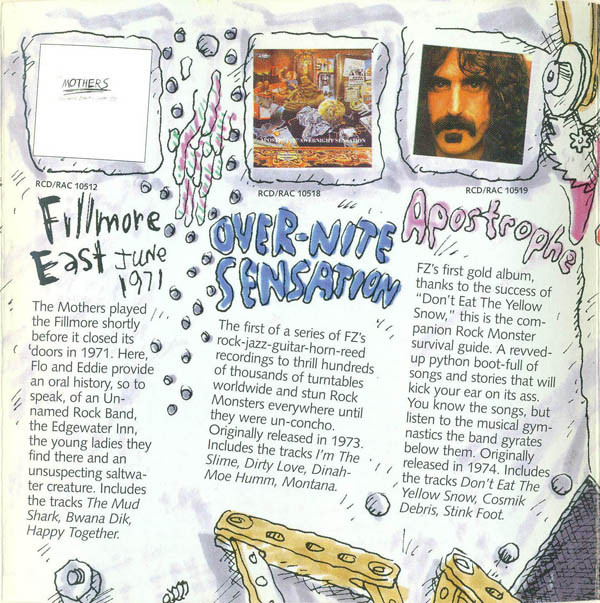 MOTHERS
RCD/RAC 10512
Fillmore
East June
1971
The Mothers played
the Fillmore shortly
before it closed its
doors in 1971. Here,
Flo and Eddie provide
an oral history, so to
speak, of an Un-
named Rock Band,
the Edgewater Inn,
the young ladies they
find there and an
unsuspecting saltwa-
ter creature. Includes
the tracks The Mud
Shark, Bwana Dik,
Happy Together.
OVERNIGHT SENSATION
RCD/RAC 10518
OVER-NITE
SENSATION
The first of a series of FZ's
rock-jazz-guitar-horn-reed
recordings to thrill hundreds
of thousands of turntables
worldwide and stun Rock
Monsters everywhere until
they were un-concho.
Originally released in 1973.
Includes the tracks I'm The
Slime, Dirty Love, Dinah-
Moe Humm, Montana.
RCD/RAC 10519
Apostrophe
FZ's first gold album,
thanks to the success of
"Don't Eat The Yellow
Snow," this is the com-
panion Rock Monster
survival guide. A revved-
up python boot-full of
songs and stories that will
kick your ear on its ass.
You know the songs, but
listen to the musical gym-
nastics the band gyrates
below them. Originally
released in 1974. Includes
the tracks Don't Eat The
Yellow Snow, Cosmik
Debris, Stink Foot.